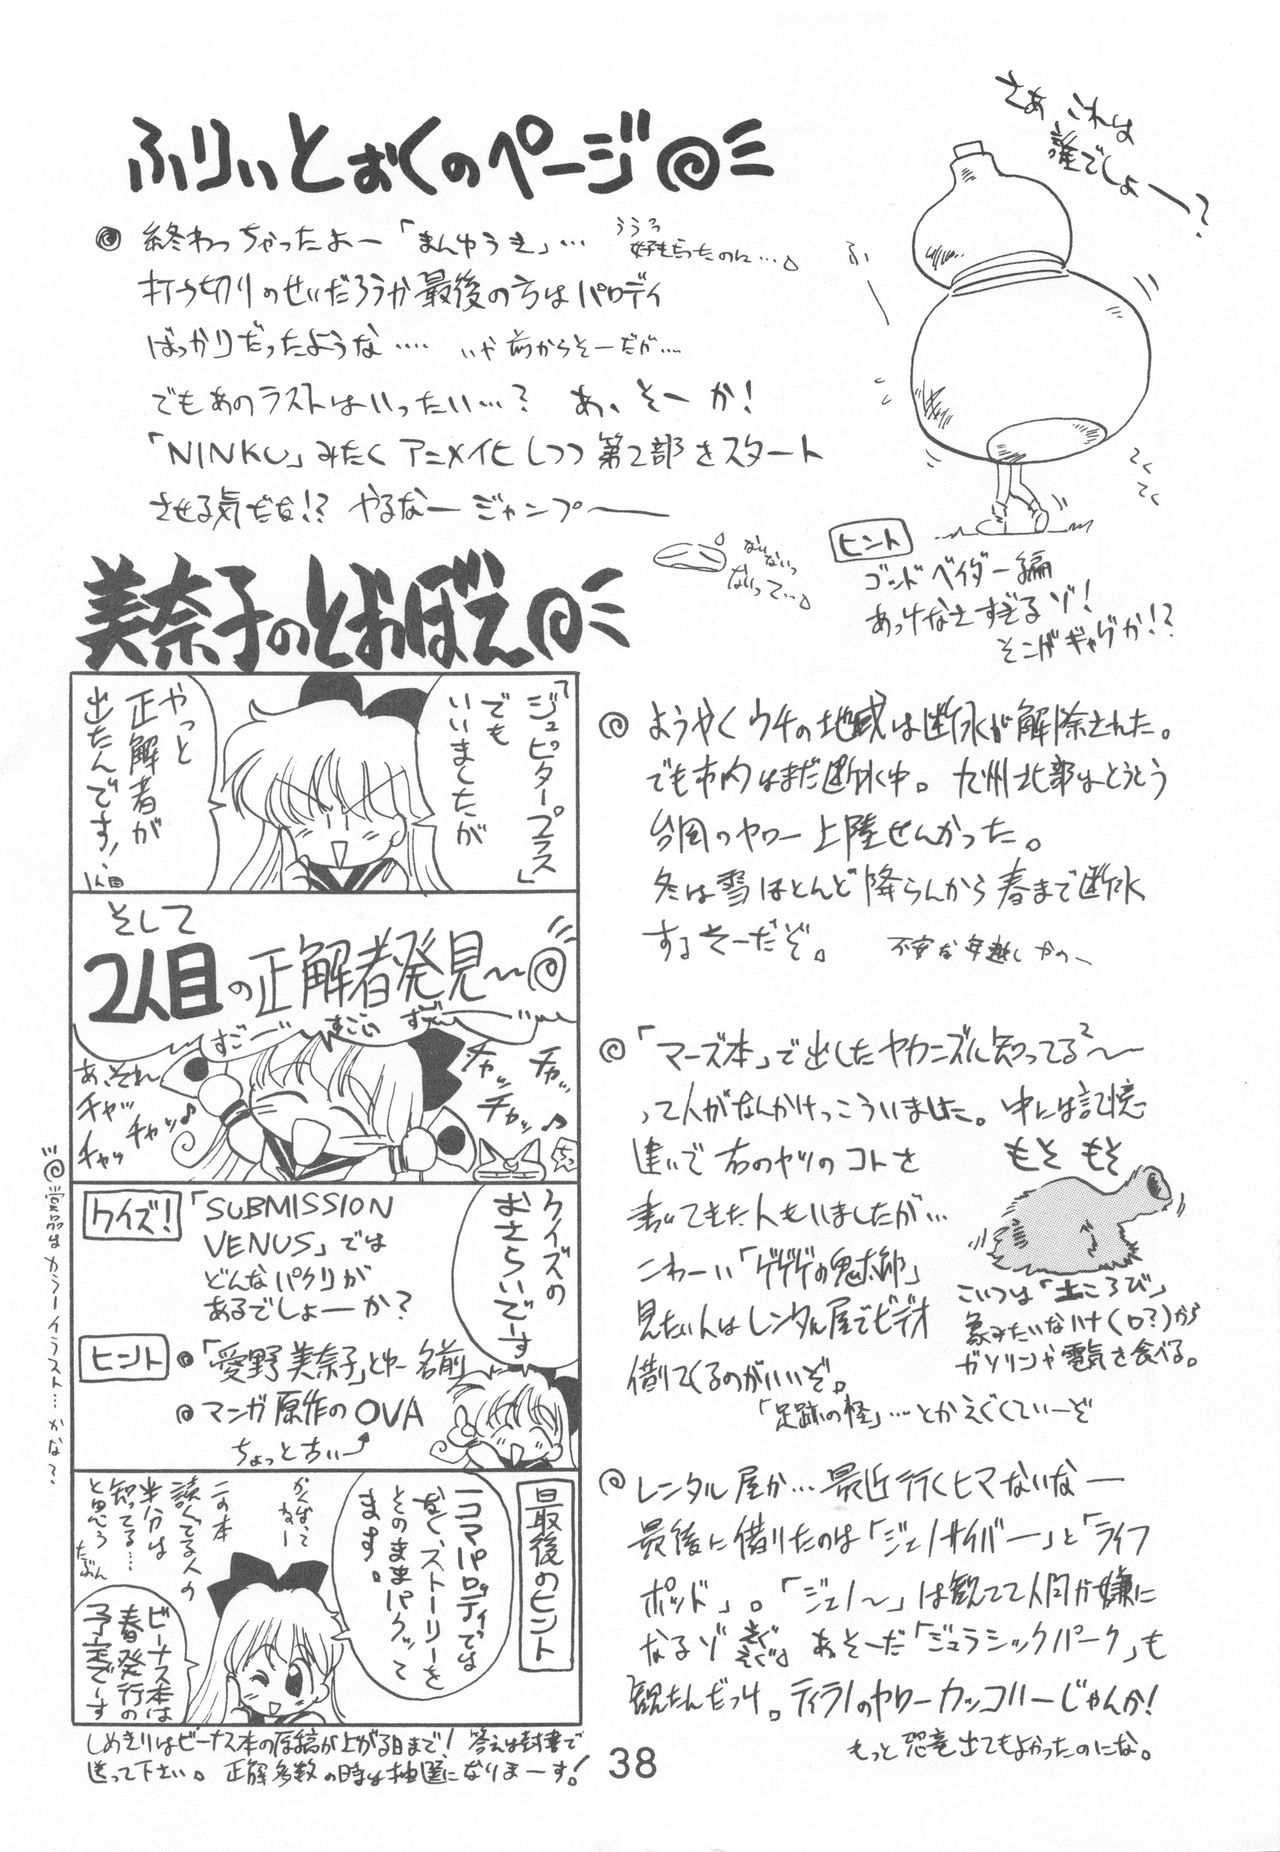 ふりぃとぉくのページ
さあ これは
誰でしょー?
終わっちゃったよー「まんゆうき」…
うううっ
好きだったのに…。
打ち切りのせいだろうか最後の方はパロディ
ばっかりだったような…. いや前からそーだが….
でもあのラストはいったい…? あ、そーか!
「NINKU」みたく アニメ化しつつ 第2部をスタート
させる気だな!? やるなー ジャンプ——
ないないっ
ないって…。
ふー
てくてく
ヒント
ゴンドベイダー編
あっけなさすぎるゾ!
そこがギャグか!?
美奈子のとおぼえ
「ジュピタープラス」
でも
いいましたが
やっと
正解者が
出たんです!
1人目
そして
2人目の正解者発見〜
すごーい すごい
あ、それ
チャッ
チャッ
チャッ
チャッ
チャッ
チャッ♪
クイズの
おさらいでーす
クイズ!
「SUBMISSION
VENUS」では
どんなパクリが
あるでしょーか?
ヒント
「愛野美奈子」とゆー名前
マンガ原作のOVA
ちょっと古い
賞品はカラーイラスト…かな?
最後のヒント
一コマパロディでは
なく、ストーリーを
そのままパクって
ます。
がんばって
ねー
この本
読んでる人の
半分は
知ってる…
と思う
たぶん
ビーナス本は
春発行の
予定でーす
しめきりはビーナス本の原稿が上がる日まで! 答えは封書で
送って下さい。 正解多数の時は抽選になりまーす!
ようやくウチの地域は断水が解除された。
でも市内はまだ断水中。 九州北部はとうとう
台風のヤロー 上陸せんかった。
冬は雪ほとんど降らんから春まで断水
するそーだぞ。 不安な年越しかのー
「マーズ本」で出したヤカニズル知ってる?〜
って人がなんかけっこういました。中には記憶
違いで右のヤツのコトを
書いてきた人もいましたが…
こわーい「ゲゲゲの鬼太郎」
見たい人はレンタル屋でビデオ
借りてくるのがいいぞ。
「足跡の怪」…とかえぐくていーぞ
もそ もそ
こいつは「土ころび」
象みたいなハナ(口?)から
ガソリンや電気を食べる。
レンタル屋か… 最近行くヒマないなー
最後に借りたのは「ジェノサイバー」と「ライフ
ポッド」。「ジェノ〜」は観てて人間が嫌に
なるゾ あ、そーだ「ジュラシックパーク」も
観たんだっけ。ティラノのヤローカッコいーじゃんか!
もっと恐竜出てもよかったのにな。
38